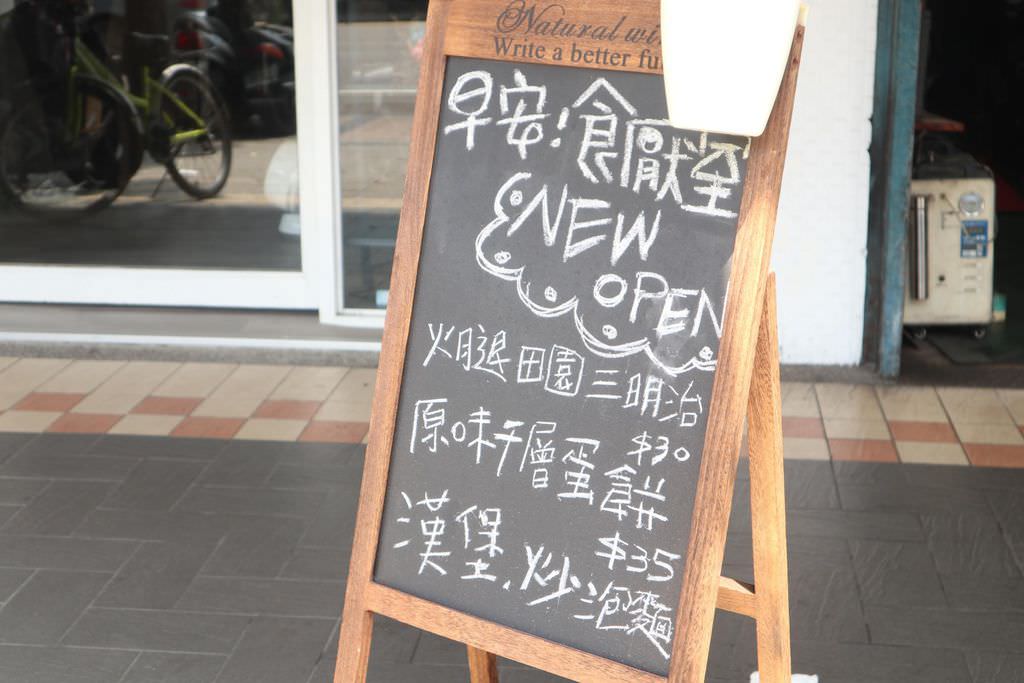 Natural wi
Write a better fu
早安!食厭室
NEW
OPEN
火腿田園三明治
$30
原味千層蛋餅
$35
漢堡.炒泡麵